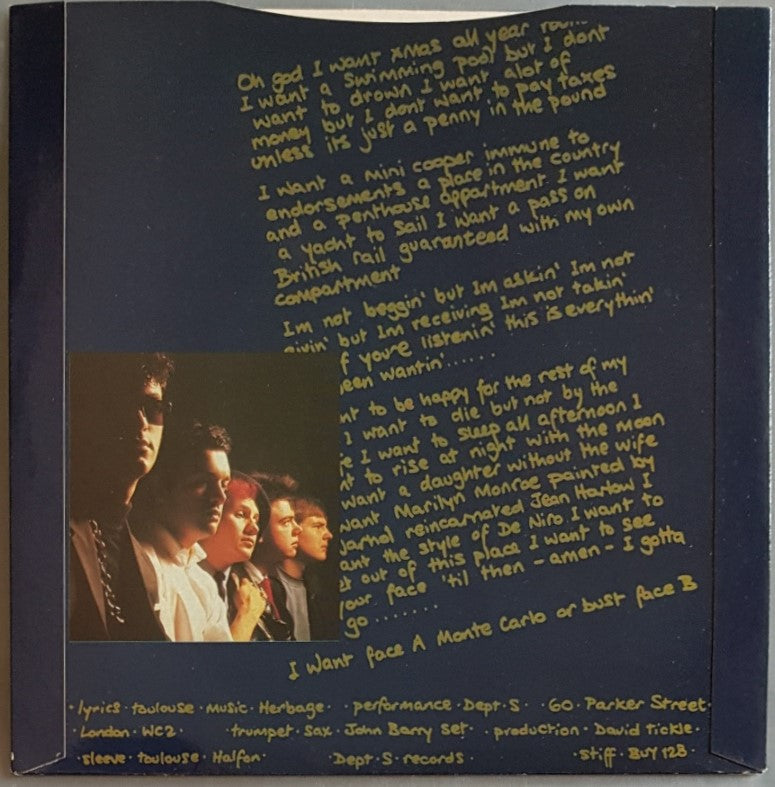 Oh god I want xmas all year round
I want a swimming pool but I dont
want to drown I want alot of
money but I dont want to pay taxes
unless its just a penny in the pound
I want a mini cooper immune to
endorsements a place in the country
and a penthouse appartment I want
a yacht to sail I want a pass on
British rail guaranteed with my own
compartment
Im not beggin' but Im askin' Im not
givin' but Im receiving Im not takin'
f youre listenin' this is everythin'
een wantin'......
nt to be happy for the rest of my
I want to die but not by the
e I want to sleep all afternoon I
nt to rise at night with the moon
want a daughter without the wife
want Marilyn Monroe painted by
warhol reincarnated Jean Harlow I
ant the style of De Niro I want to
t out of this place I want to see
your face 'til then - amen - I gotta
go.......
I Want face A Monte Carlo or bust face B
· lyrics · toulouse · music · Herbage · · performance · Dept · S · · 60 · Parker Street ·
· London · WC2 · trumpet · sax · John Barry Set · · production · David Tickle ·
· sleeve · toulouse · Halfon · Dept · S · records · · stiff · BUY 128 ·